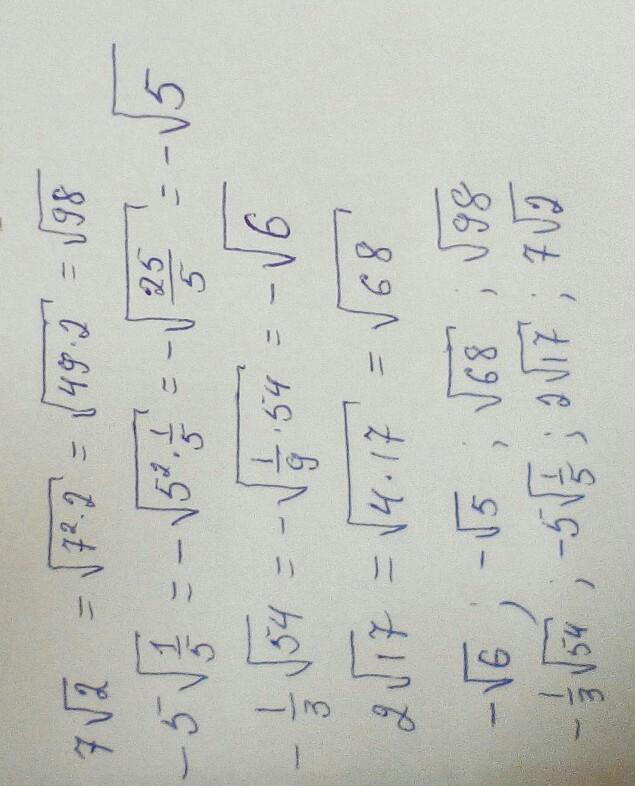 7√2 = √7²·2 = √49·2 = √98
-5√1/5 = -√5²·1/5 = -√25/5 = -√5
-1/3√54 = -√1/9·54 = -√6
2√17 = √4·17 = √68
-√6; -√5; √68; √98
-1/3√54; -5√1/5; 2√17; 7√2